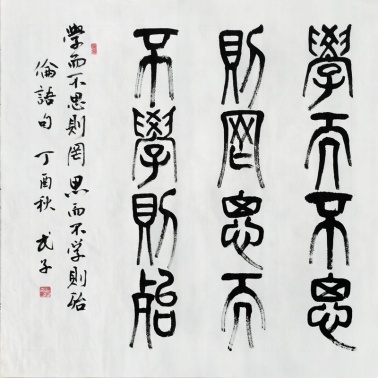 學而不思
則罔思而
不學則殆
學而不思則罔 思而不学則殆
倫語句 丁酉秋